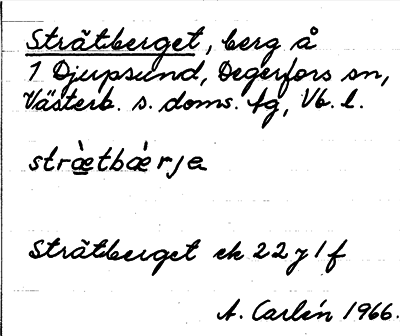 Strätberget, berg å
1 Djupsund, Degerfors sn,
Västerb. s. doms. tg, Vb. l.
stræ̀tbæ̀rjɐ
Strätberget ek 22 y 1 f
A. Carlén 1966.